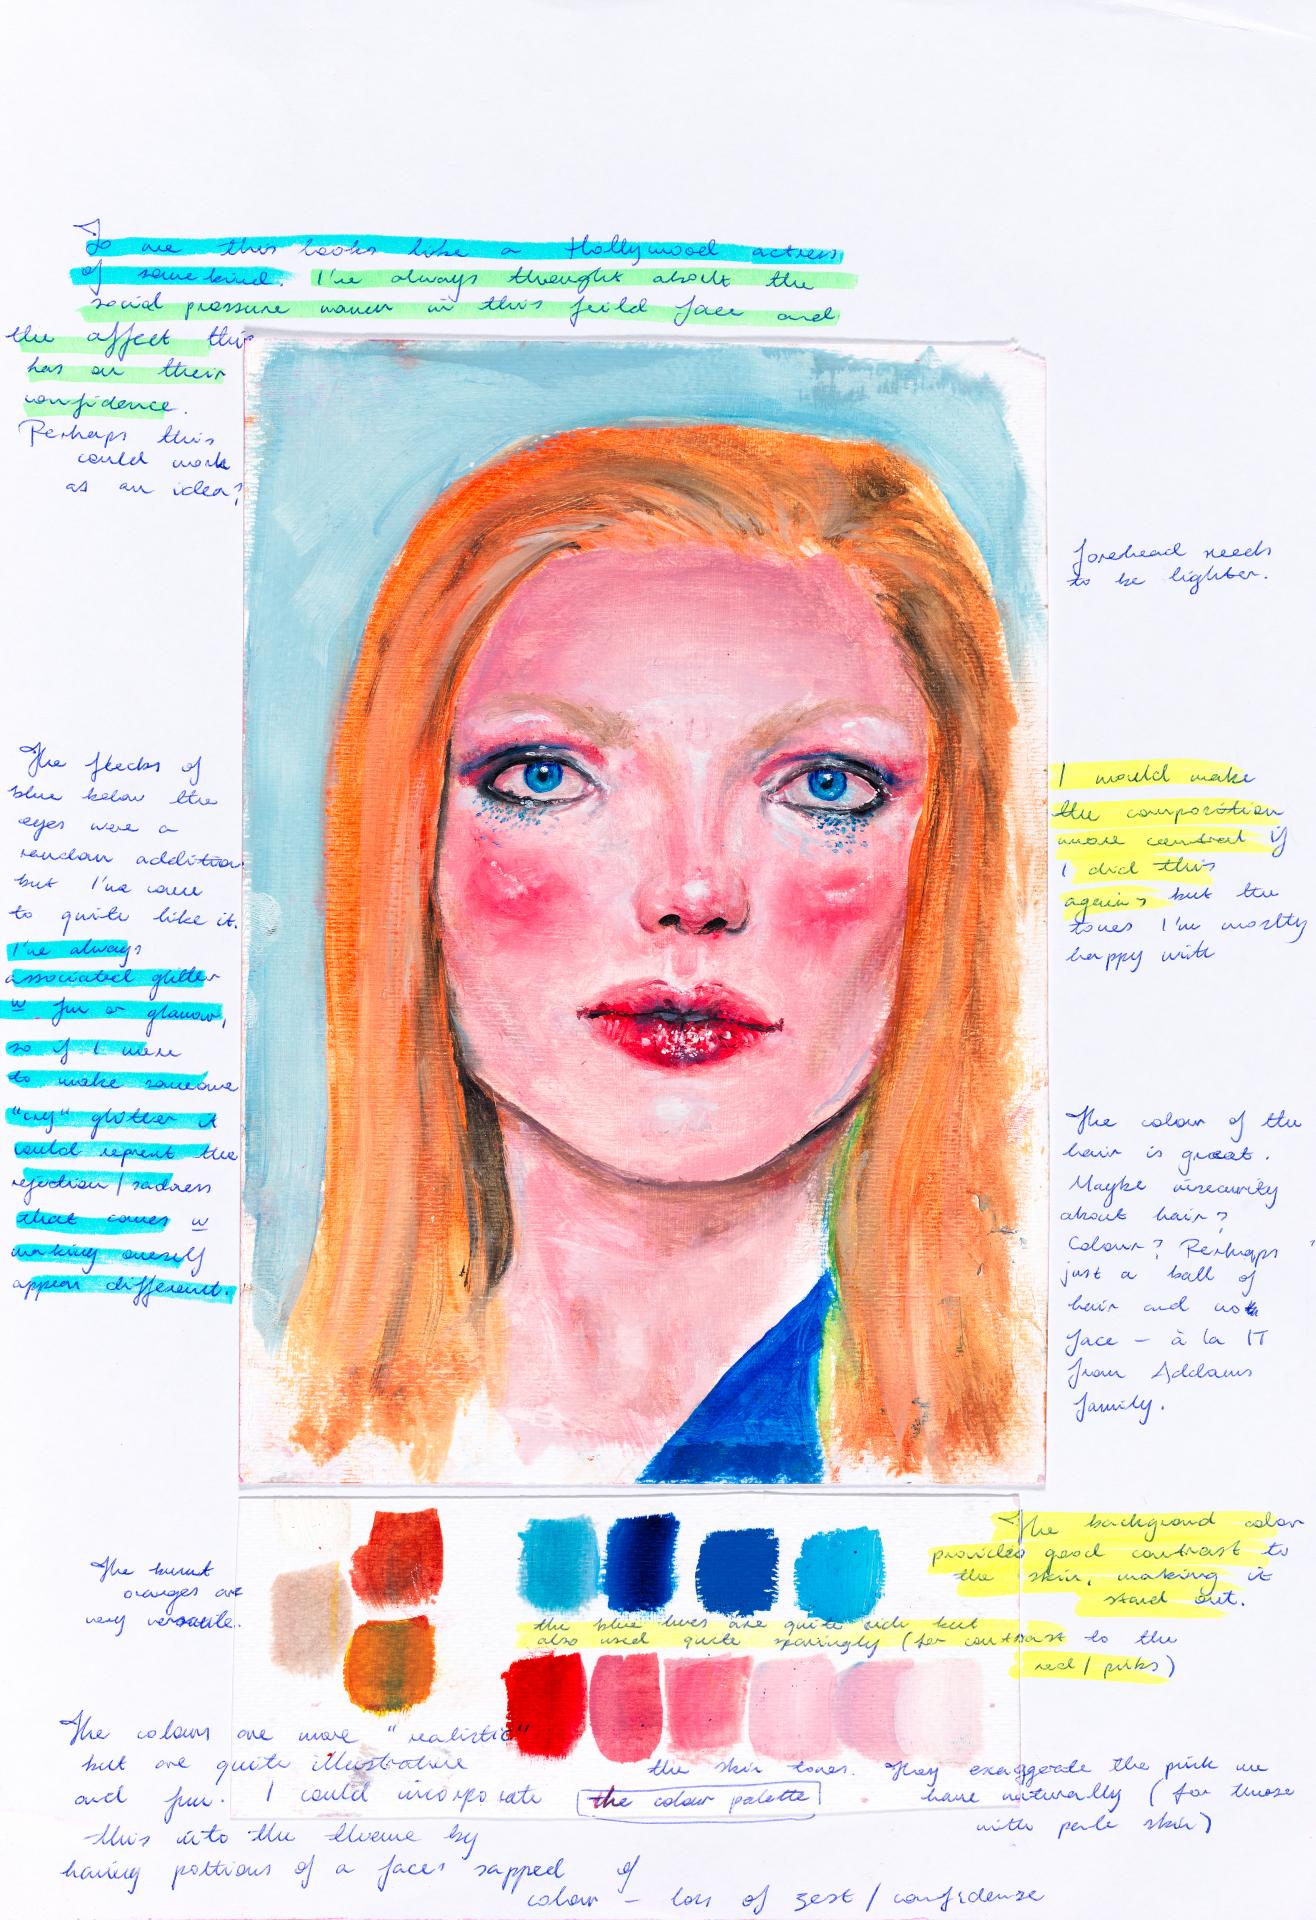 To me this looks like a Hollywood actress
of some kind. I've always thought about the
social pressure women in this feild face and
the affect this
has on their
confidence.
Perhaps this
could work
as an idea?
forehead needs
to be lighter.
The flecks of
blue below the
eyes were a
random addition
but I've came
to quite like it.
I've always
associated glitter
w fun or glamour,
so if I were
to make someone
"cry" glitter it
could reprent the
rejection / sadness
that comes w
making oneself
appear different.
I would make
the composition
more central if
I did this
again, but the
tones I'm mostly
happy with
The colour of the
hair is great.
Maybe insecurity
about hair?
Colour? Perhaps
just a ball of
hair and no
face - à la IT
from Addams
family.
The burnt
oranges are
very versatile.
The background color
provides good contrast to
the skin, making it
stand out.
the blue hues are quite rich but
also used quite sparingly (for contrast to the
red / pinks)
The colours are more "realistic"
but are quite illustrative
and fun. I could incorporate
this into the theme by
having portions of a face sapped of
colour - loss of zest / confidence
the skin tones. They exaggerate the pink we
have naturally (for those
with pale skin)
the colour palette